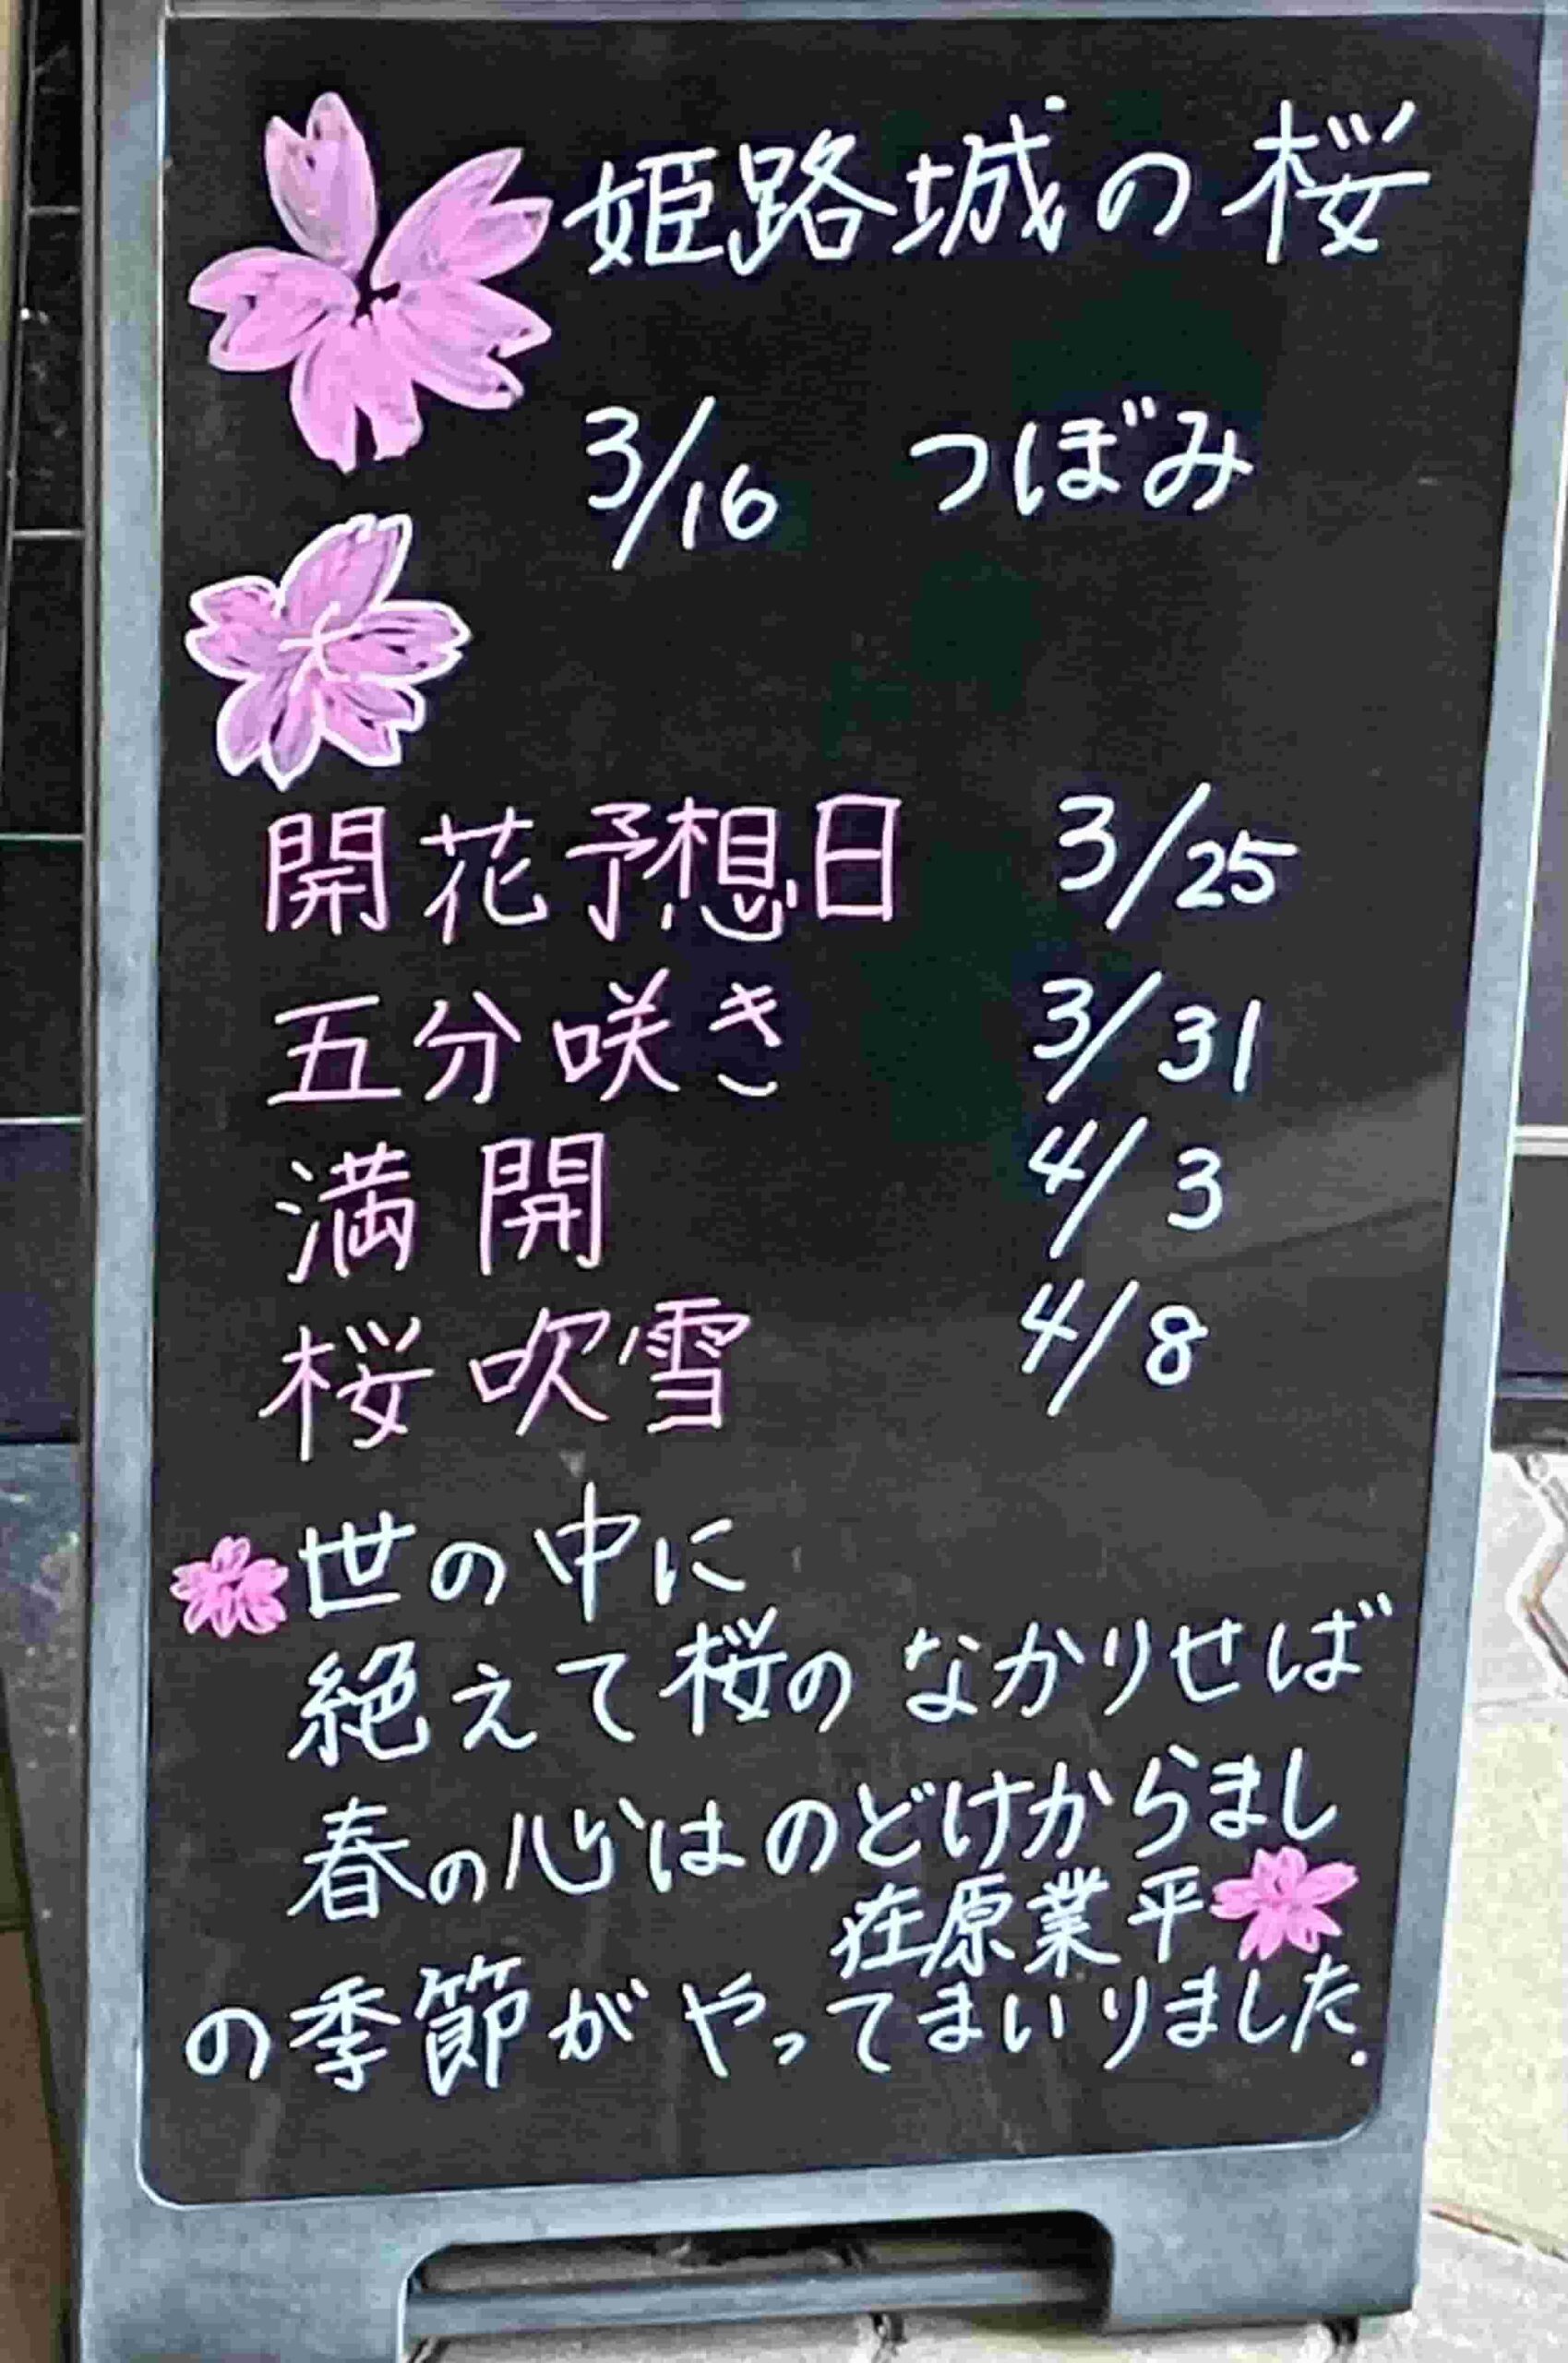 姫路城の桜
3/16 つぼみ
開花予想日 3/25
五分咲き 3/31
満開 4/3
桜吹雪 4/8
世の中に
絶えて桜の なかりせば
春の心は のどけからまし
在原業平
の季節が やってまいりました.